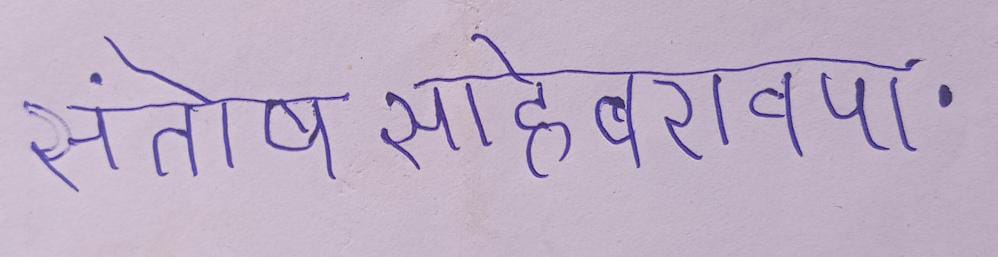 संतोष साहेबराव पां.